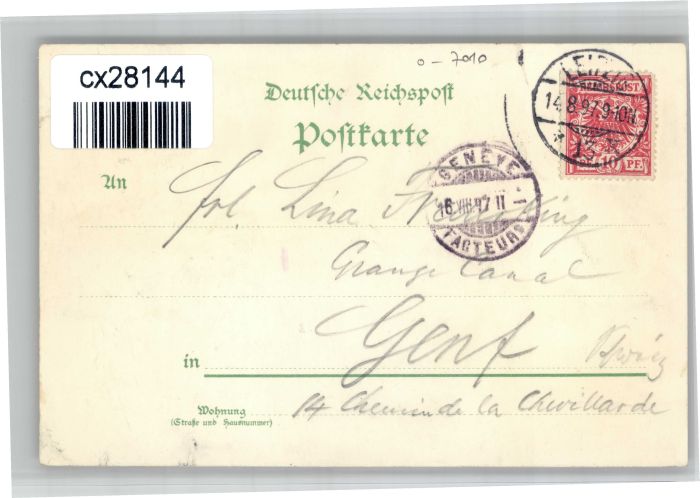 cx28144
0-7010
Deutsche Reichspost
Postkarte
LEIPZIG
14.8.97.9-10N
* 13 *
REICHSPOST
10 PF.
GENEVE
16.VIII.97 II
FACTEURS
An
Frl. Lina
Grange Canal
in Genf
14 Chemin de la Chevillarde
Wohnung
(Straße und Hausnummer)